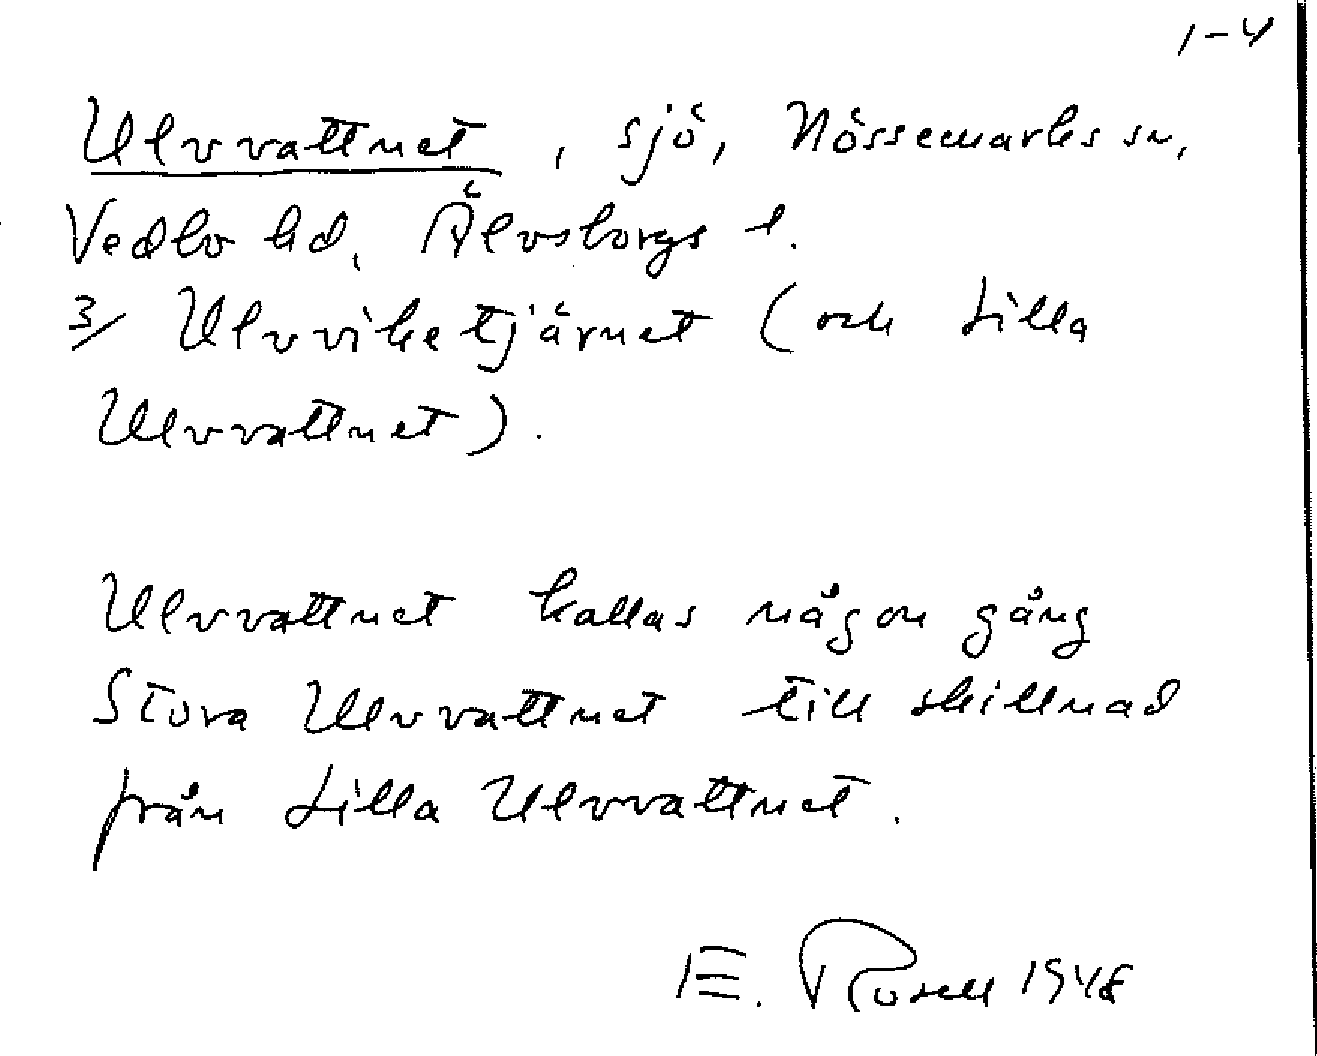 1-4
Ulvvattnet, sjö, Nössemarks sn,
Vedbo hd, Älvsborgs l.
3/ Ulvviketjärnet (och Lilla
Ulvvattnet).
Ulvvattnet kallas någon gång
Stora Ulvvattnet till skillnad
från Lilla Ulvvattnet.
E. Rosell 1948